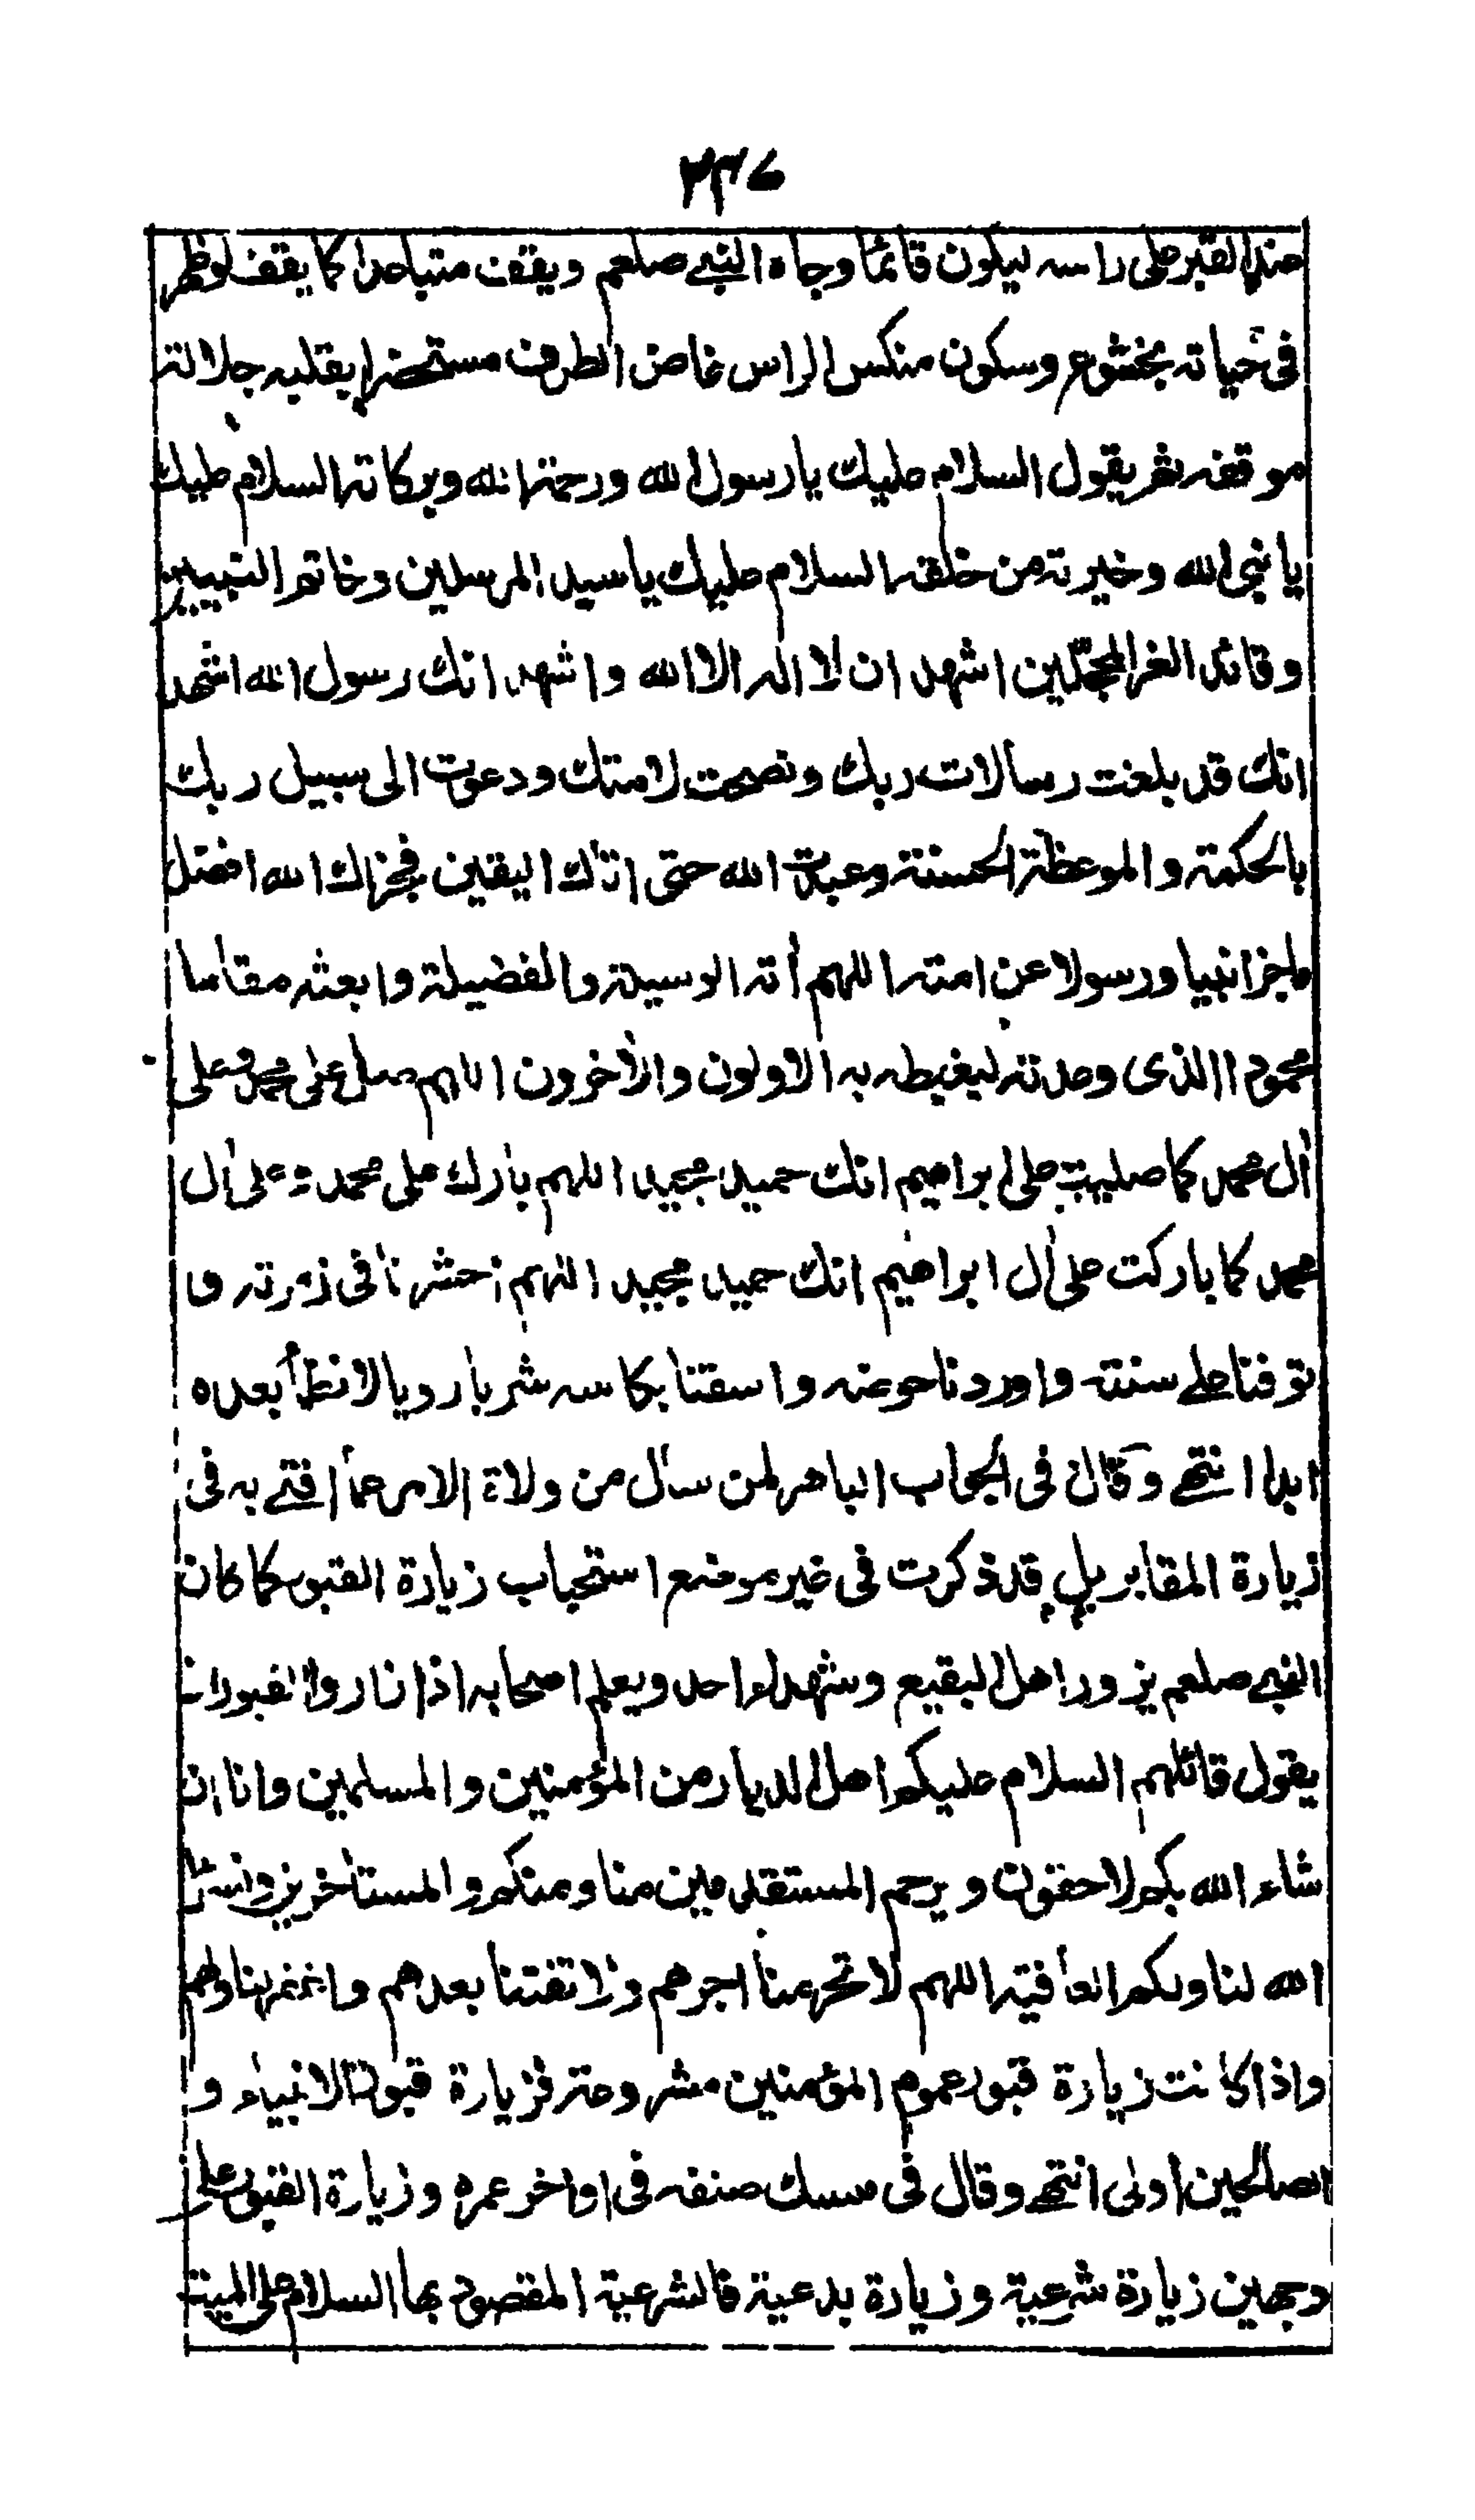 ٢٣٧
عند القبر على راسه ليكون قائما وجاه النبي صلعم ويقف متباعدا كما يقف لو ظهر
فى حياته بخشوع وسكون منكس الراس غاض الطرف مستحضرا بقلبه جلالة
موقفه ثم يقول السلام عليك يا رسول الله ورحمة الله وبركاته السلام عليك
يا نبى الله وخيرته من خلقه السلام عليك يا سيد المرسلين وخاتم النبيين
وقائد الغر المحجلين اشهد ان لا اله الا الله واشهد انك رسول الله اشهد
انك قد بلغت رسالات ربك ونصحت لامتك ودعوت الى سبيل ربك
بالحكمة والموعظة الحسنة وعبدت الله حتى اتاك اليقين فجزاك الله افضل
ما جزا نبيا ورسولا عن امته اللهم أته الوسيلة والفضيلة وابعثه مقاما
محمودا الذى وعدته ليغبطه به الاولون والأخرون اللهم صل على محمد وعلى
أل محمد كما صليت على ابراهيم انك حميد مجيد اللهم بارك على محمد وعلى أل
محمد كما باركت على أل ابراهيم انك حميد مجيد اللهم احشرنا فى زمرته و
توفنا على سنته واوردنا حوضه واسقنا بكاسه شربا رويا لا نظمأ بعده
ابدا انتهى وقال فى الجواب الباهر لمن سأل من ولاة الامر عما افتى به فى
زيارة المقابر بل قد ذكرت فى غير موضع استحباب زيارة القبور كما كان
النبي صلعم يزور اهل البقيع وشهداء احد ويعلم اصحابه اذا زاروا القبور ان
يقول قائلهم السلام عليكم اهل الديار من المؤمنين والمسلمين وانا ان
شاء الله بكم لاحقون ويرحم المستقدمين منا ومنكم والمستاخرين ونسئل
الله لنا ولكم العافية اللهم لا تحرمنا اجرهم ولا تفتنا بعدهم واغفر لنا ولهم
واذا كانت زيارة قبور عموم المؤمنين مشروعة فزيارة قبور الانبياء و
الصالحين اولى انتهى وقال فى منسك صنفه فى اواخر عمره وزيارة القبور على
وجهين زيارة شرعية وزيارة بدعية فالشرعية المقصود بها السلام على الميت